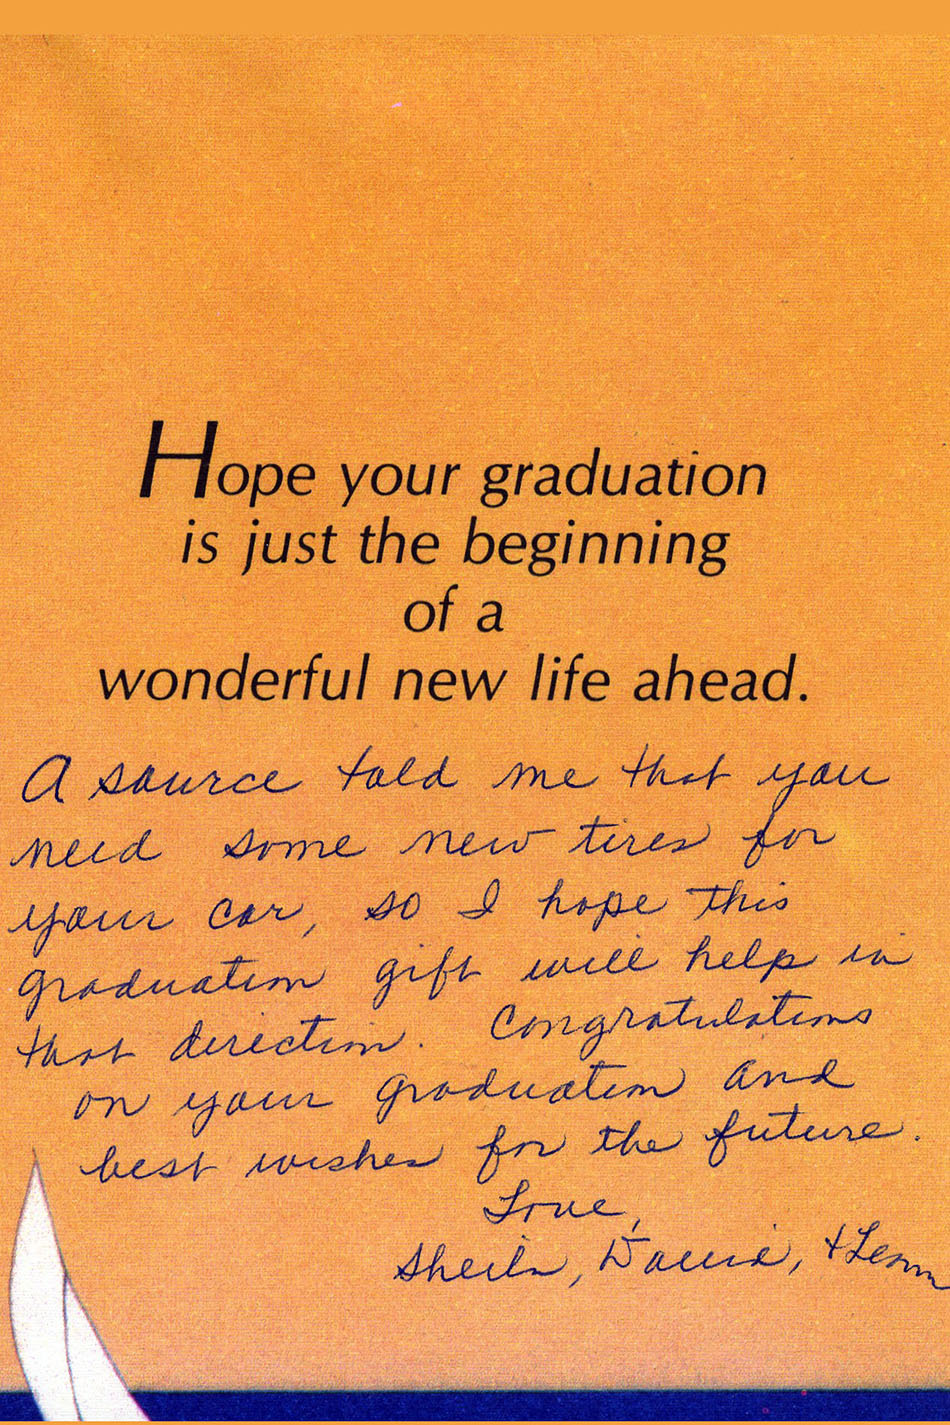 Hope your graduation
is just the beginning
of a
wonderful new life ahead.
A source told me that you
need some new tires for
your car, so I hope this
graduation gift will help in
that direction. Congratulations
on your graduation and
best wishes for the future.
Love,
Sheila, David, +